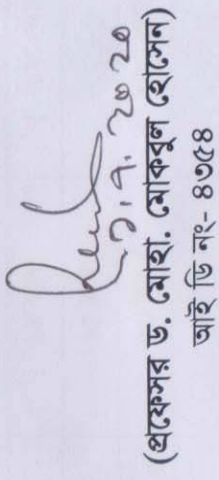 ৭.৭.২০২০
(প্রফেসর ড. মোহা. মোকবুল হোসেন)
আই ডি নং- ৪৩৫৪